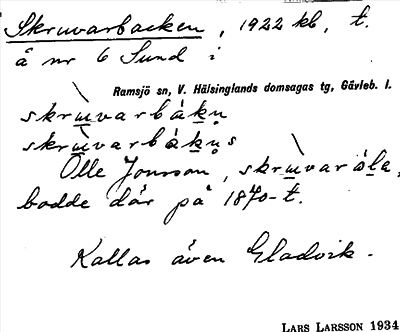 Skruvarbacken, 1922 kb, t.
å nr 6 Sund i
Ramsjö sn, V. Hälsinglands domsagas tg, Gävleb. l.
skrùvarbákn̥
skrùvarbákn̥s
Olle Jonsson, skrùvaröle,
bodde där på 1870-t.
Kallas även Gladvik.
LARS LARSSON 1934